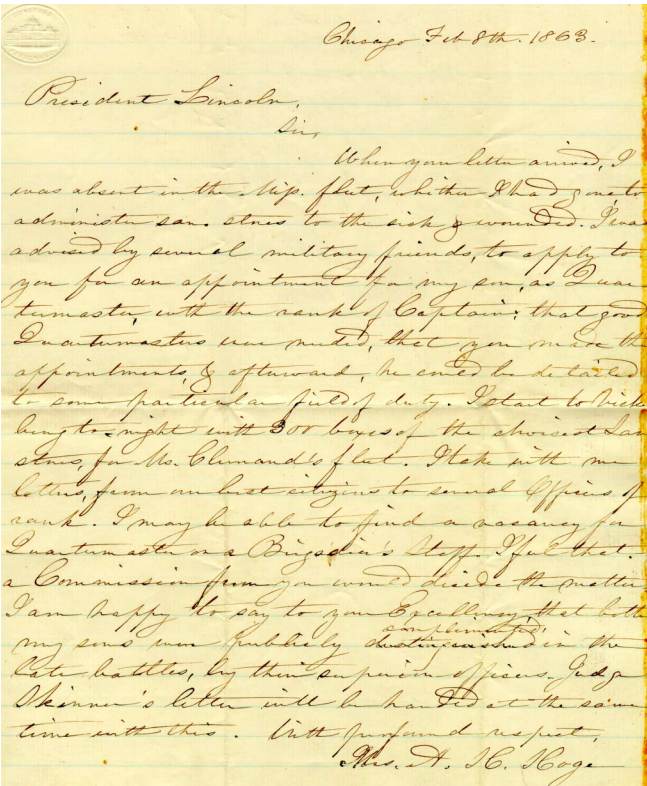 Chicago Feb 8th. 1863.
President Lincoln,
Sir,
When your letter arrived, I
was absent in the Mip. fleet, whither I had gone to
administer san. stores to the sick & wounded. I was
advised by several military friends, to apply to
you for an appointment for my son, as Quar
termaster, with the rank of Captain; that good
Quartermasters were needed, that you made the
appointments, & afterward, he could be detailed
to some particular field of duty. I start to Vicks
burg to-night with 300 boxes of the choicest San
stores, for Mc. Clernand's fleet. I take with me
letters, from our best citizens to several Officers of
rank. I may be able to find a vacancy for
Quartermaster on a Brigadier's Staff. I feel that
a Commission from you would decide the matter
I am happy to say to your Excellency, that both
complimented
my sons were publicly distinguished in the
late battles, by their superior officers. Judge
Skinner's letter will be handed at the same
time with this. With profound respect,
Mrs. A. H. Hoge